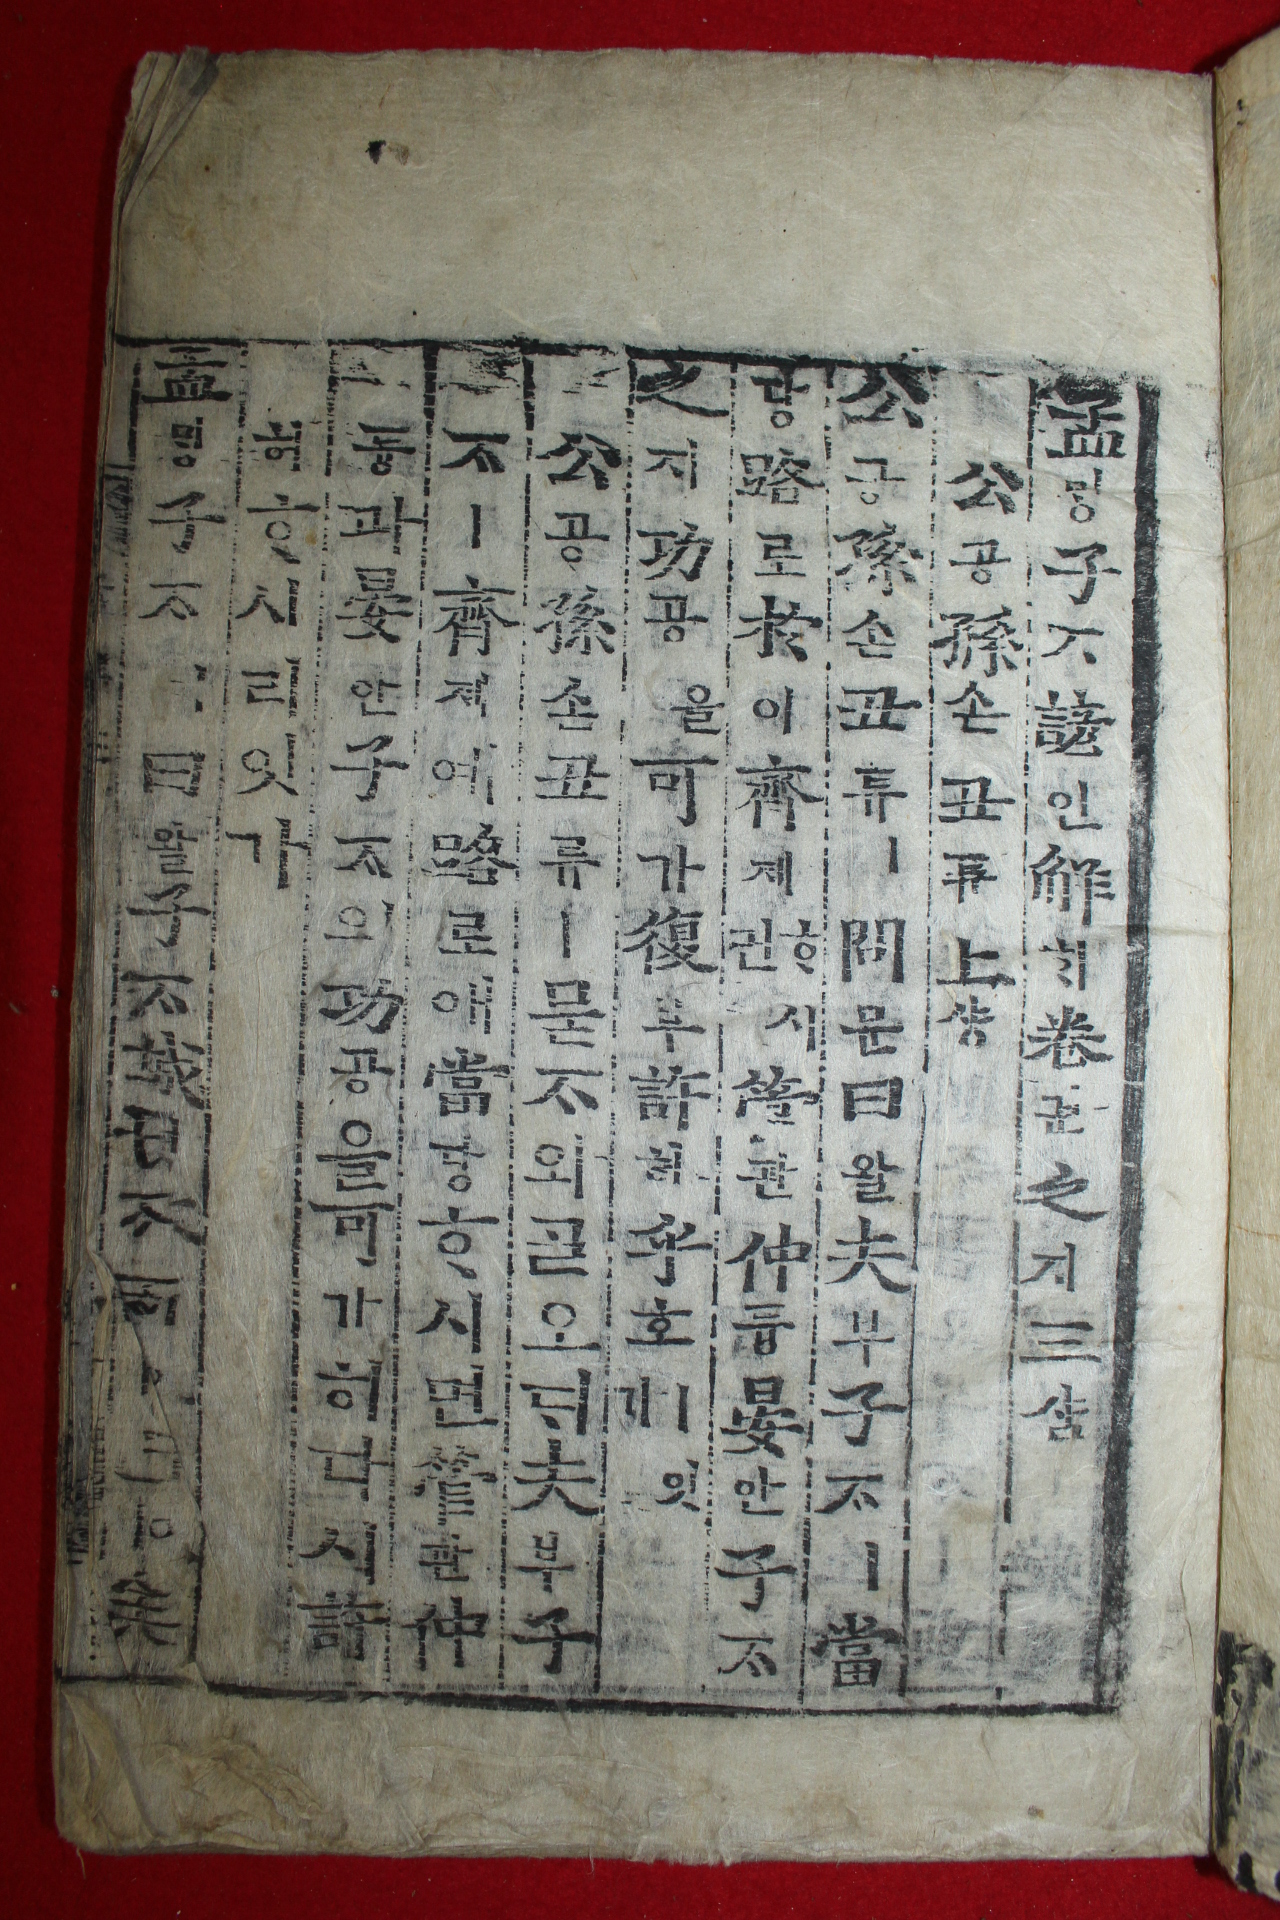 孟밍子ᄌᆞ諺언解ᄒᆡ卷권之지三삼
公공孫손丑튜上샹
公공孫손丑튜ㅣ問문曰왈夫부子ᄌᆞㅣ當
당路로於어齊졔ᄒᆞ시면管관仲듕晏안子ᄌᆞ
之지功공을可가復부許허乎호ㅣ잇가
公공孫손丑튜ㅣ묻ᄌᆞ와ᄀᆞᆯ오ᄃᆡ夫부子
ᄌᆞㅣ齊졔예路로애當당ᄒᆞ시면管관仲
듕과晏안子ᄌᆞ의功공을可가히다시許
허ᄒᆞ시리잇가
孟밍子ᄌᆞㅣ曰왈子ᄌᆞ誠셩